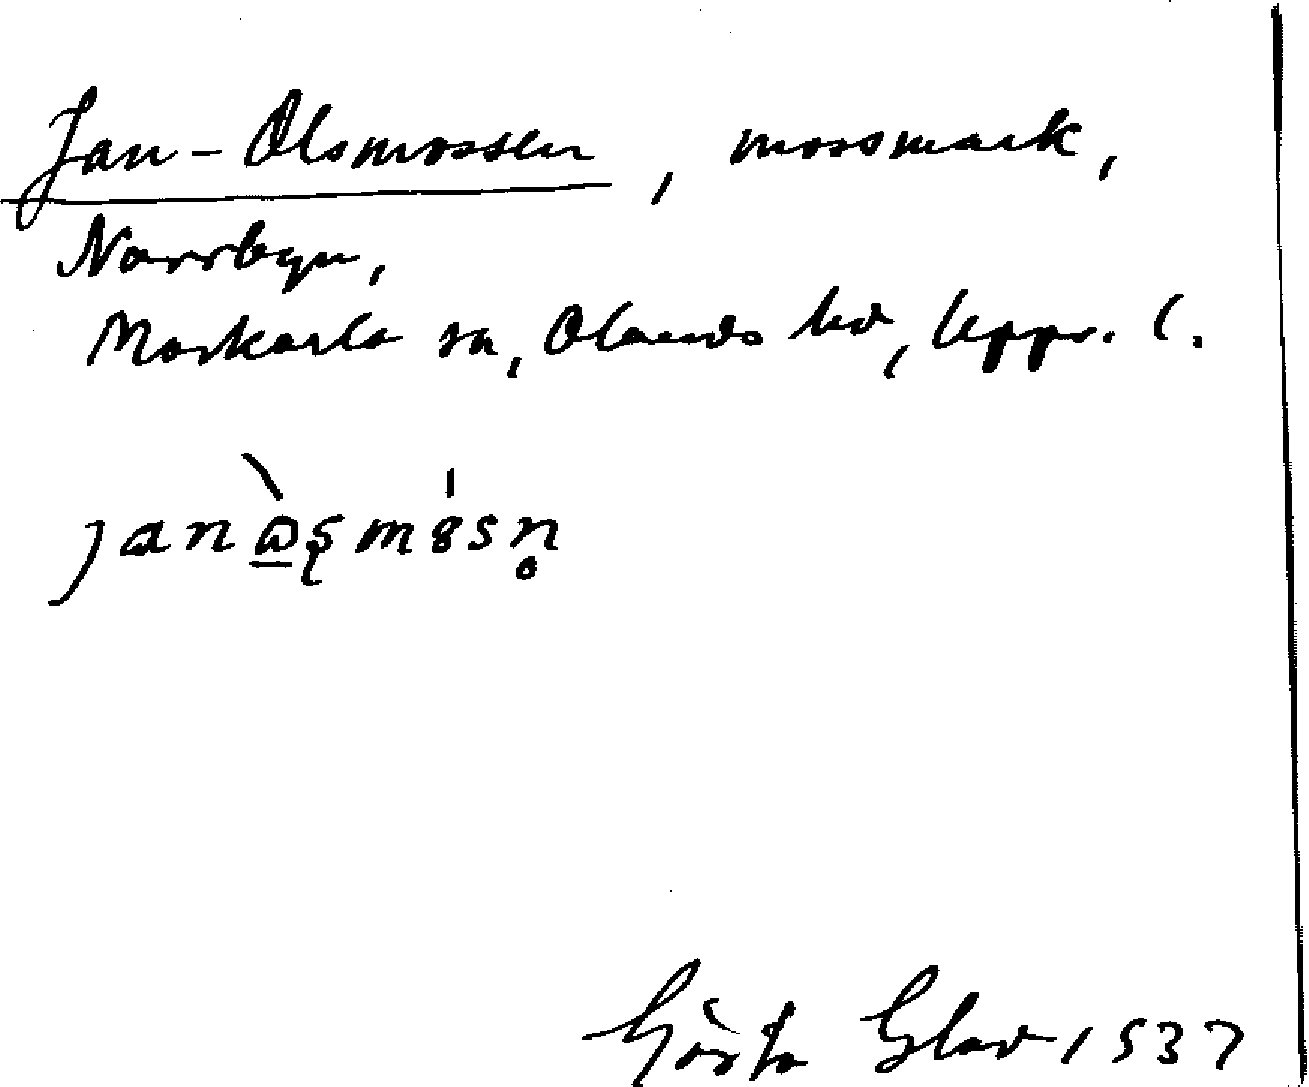 Jan-Olsmossen, mossmark,
Norrbyn,
Morkarla sn, Olands hd, Upps. l.
Gösta Glad 1937